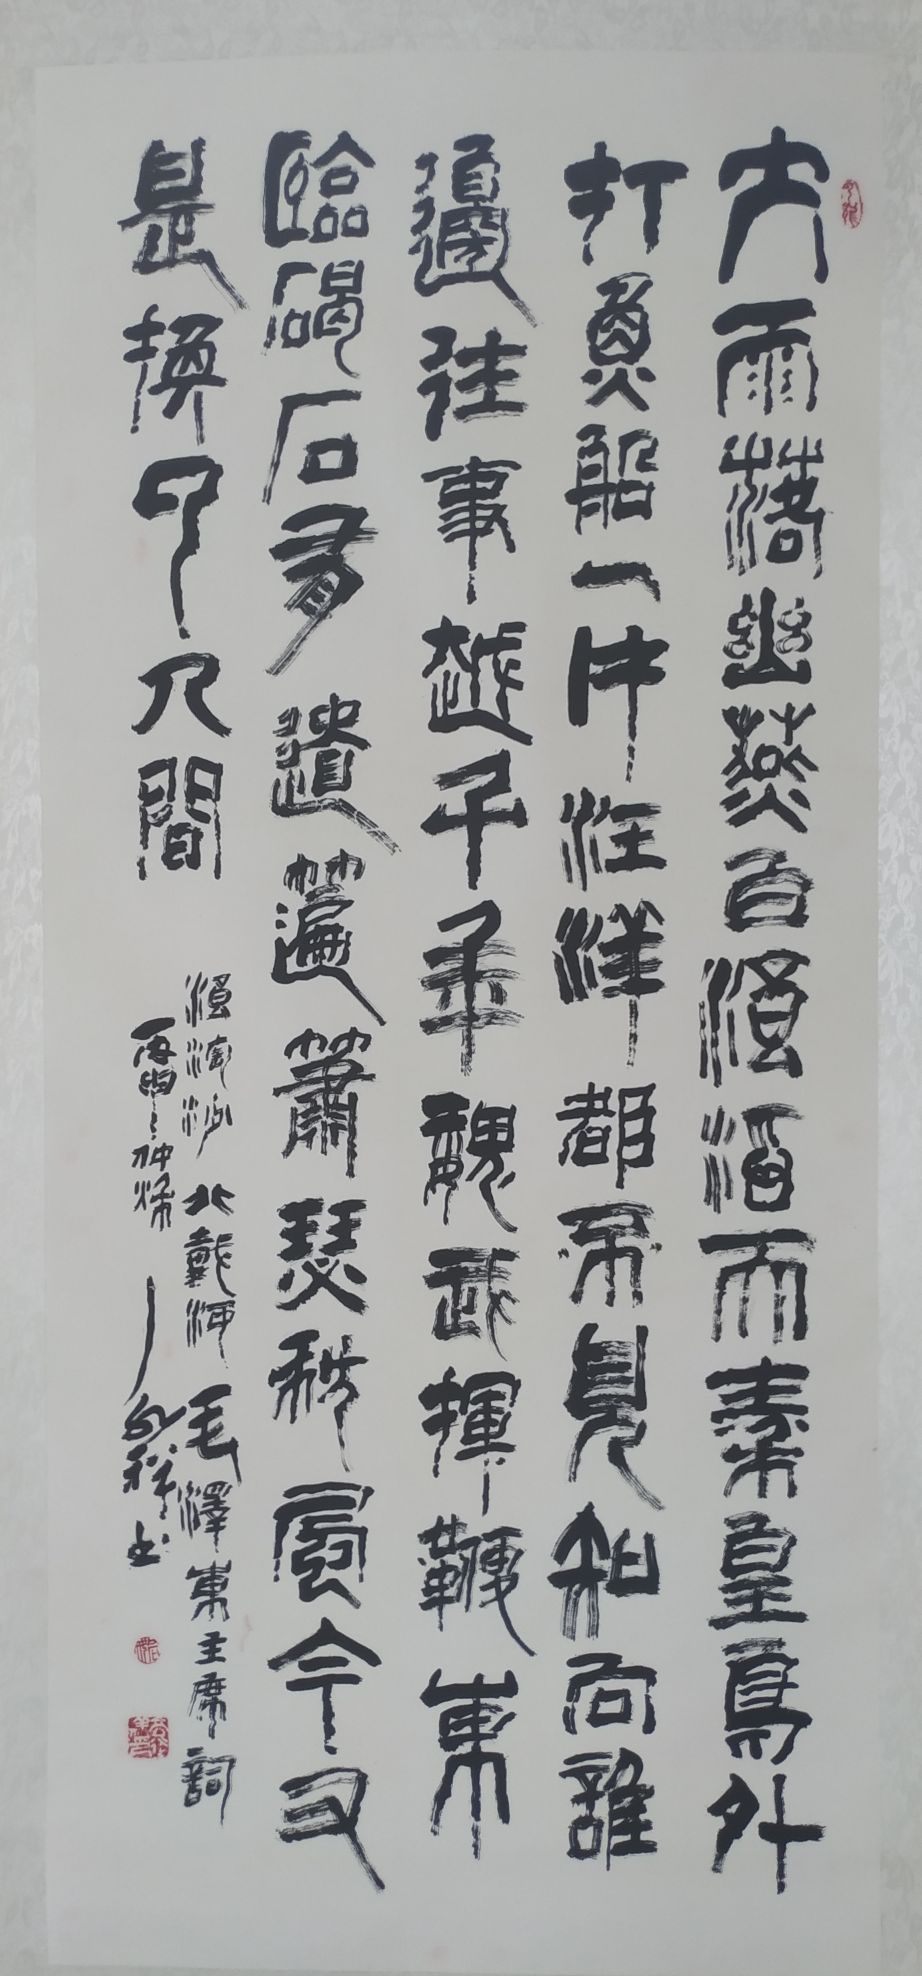 大雨落幽燕白浪滔天秦皇島外
打魚船一片汪洋都不見知向誰
邊往事越千年魏武揮鞭東
臨碣石有遺篇蕭瑟秋風今又
是換了人間
浪淘沙 北戴河 毛澤東主席詞
丙申仲 书